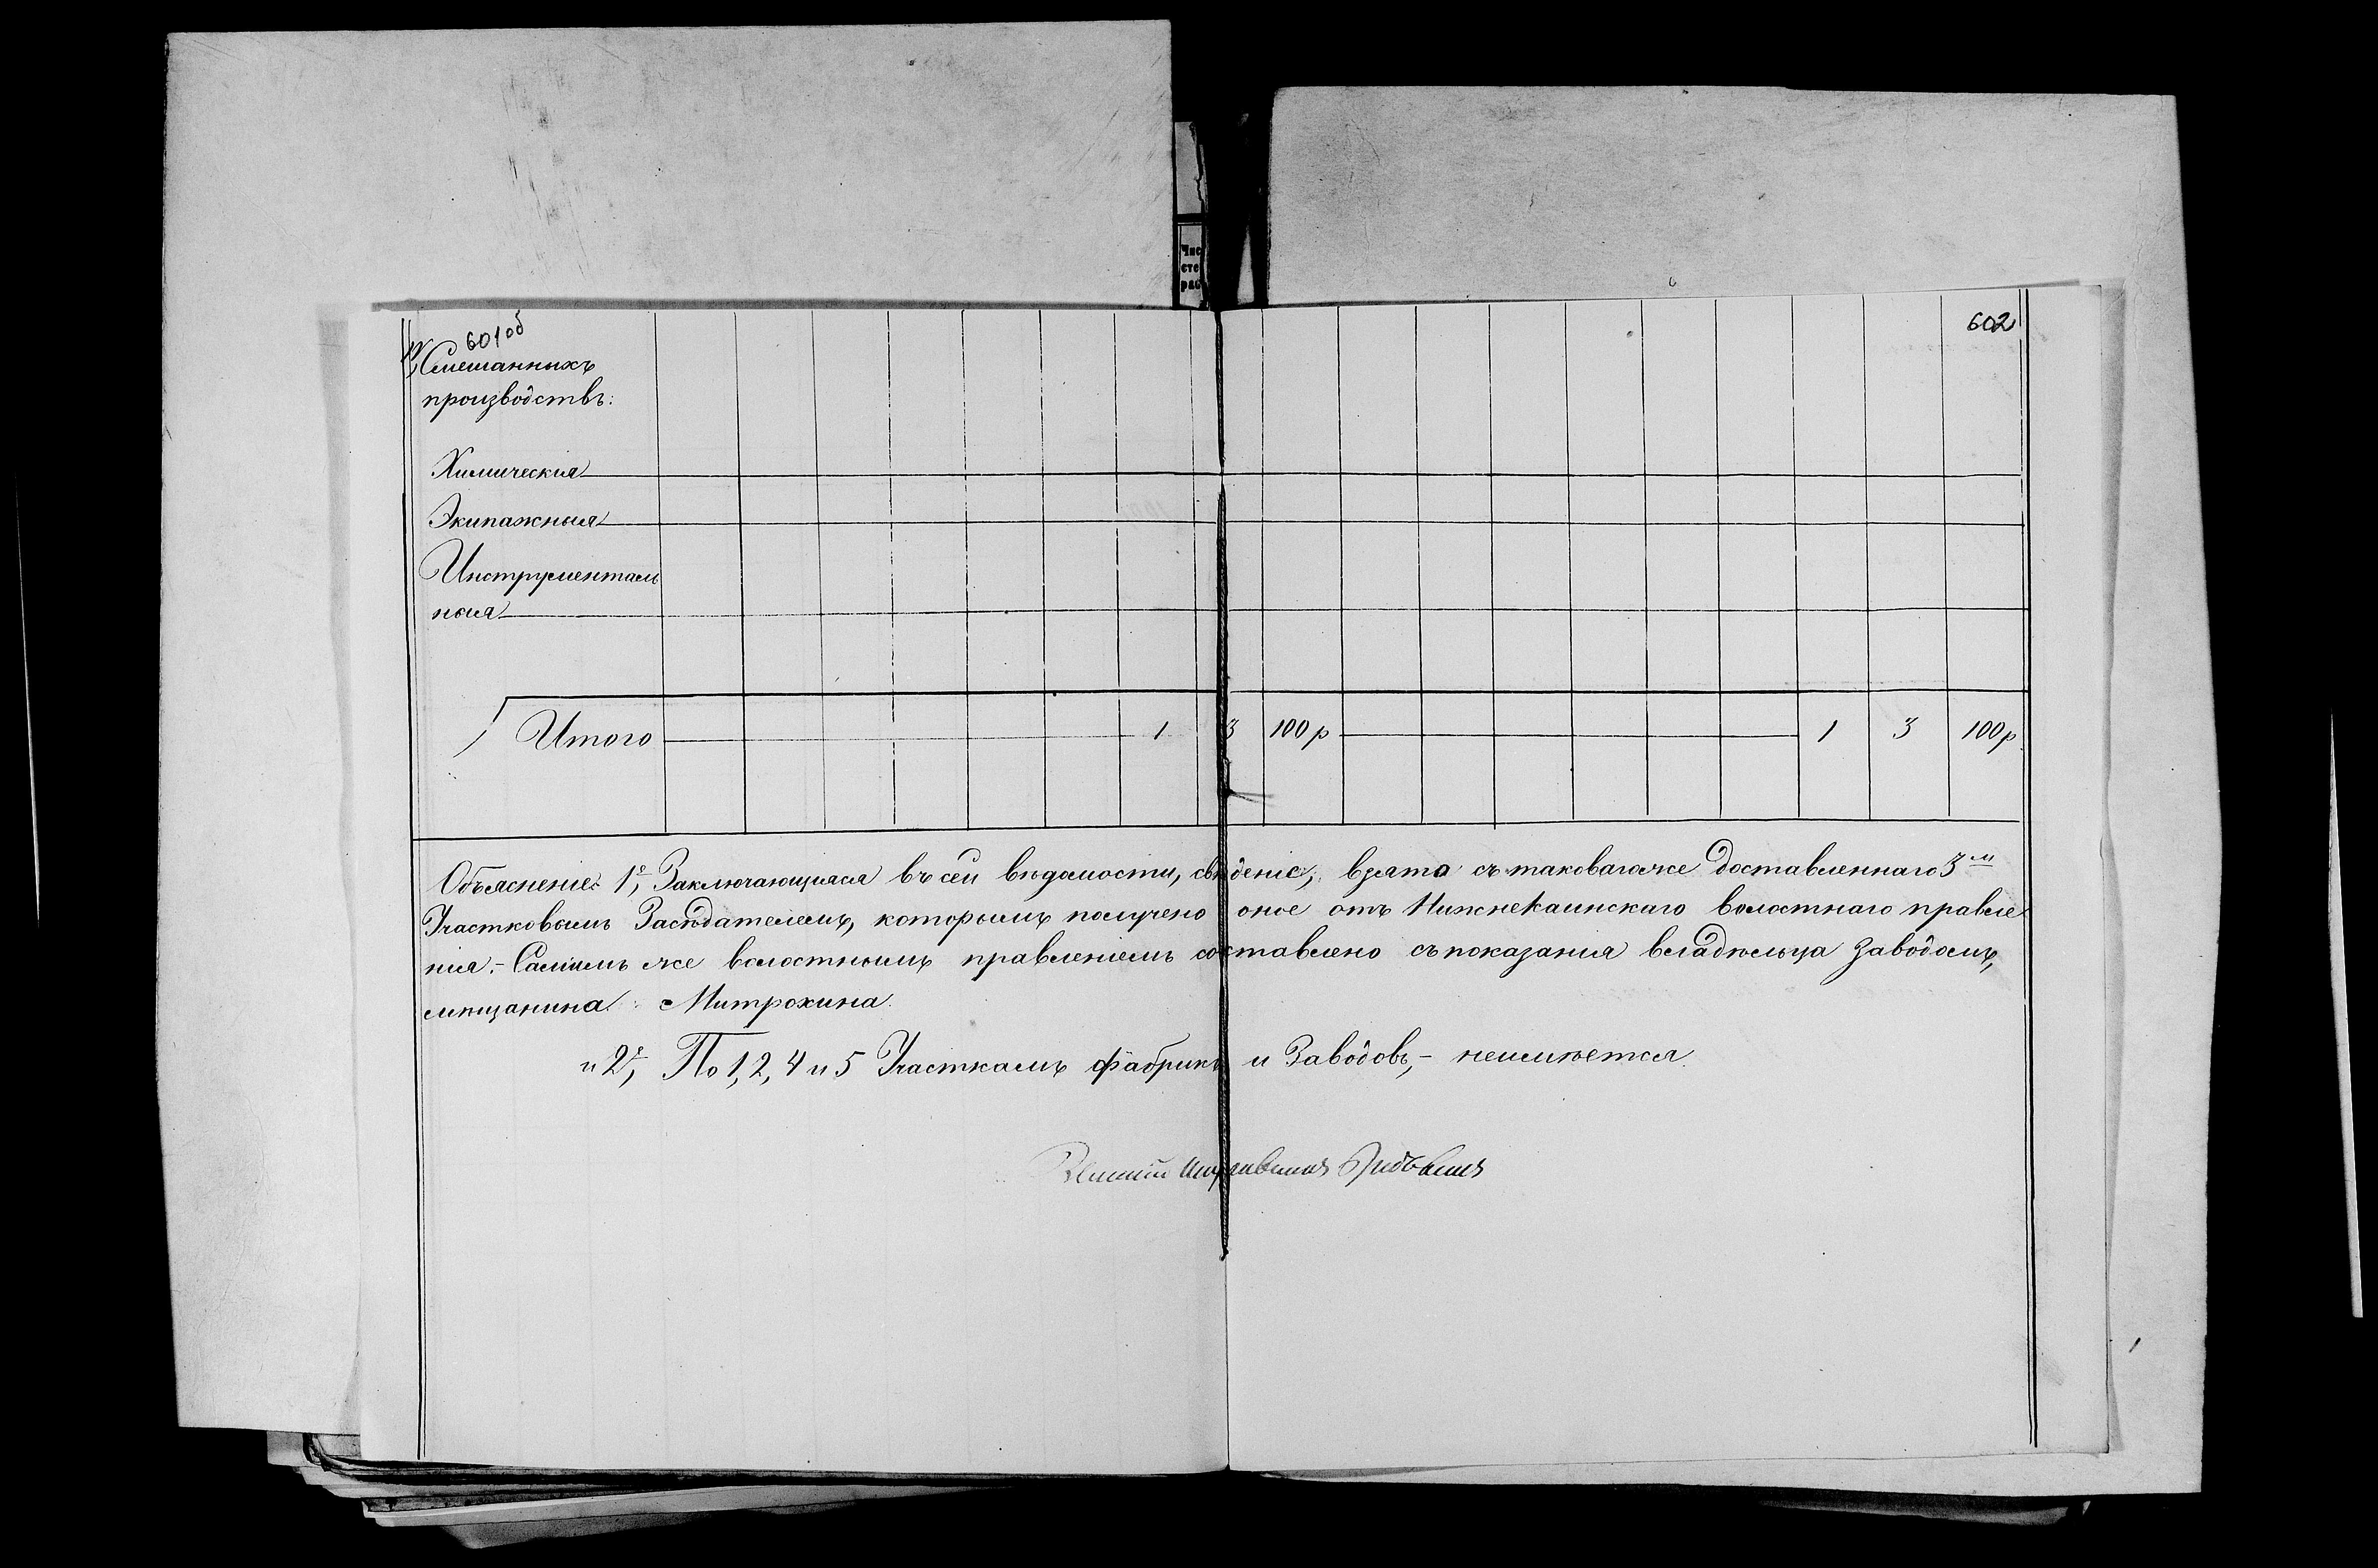 601об
602
Смешанныхъ
производствъ:
Химическія
Экипажныя
Инструменталь
ныя
Итого 1 3 100 р 1 3 100 р
Объясненіе: 1е, Заключающіяся въ сей вѣдомости, свѣденіе, взято съ таковагоже доставленнаго 3м
Участковымъ Засѣдателемъ, которымъ получено оное отъ Нижнекаинскаго волостнаго правле
нія.- Самимъ же волостнымъ правленіемъ составлено съ показанія владѣльца заводомъ,
мѣщанина Митрохина.
и 2е, По 1, 2, 4 и 5 Участкамъ фабрикъ и Заводовъ,- неимѣется.
Чис
сте
рас